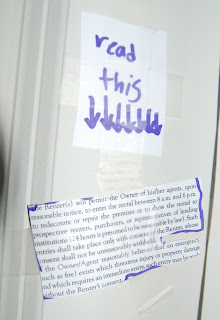 read
this
Renter(s) will permit the Owner or his/her agents, upon
reasonable notice, to enter the rental between 8 a.m. and 6 p.m.
to redecorate or repair the premises or to show the rental to
prospective renters, purchasers, or representatives of lending
institutions (24 hours is presumed to be reasonable by law). Such
entries shall take place only with consent of the Renter, whose
consent shall not be unreasonably withheld. If
the Owner/Agent reasonably believes that an emergency
such as fire) exists which threatens injury or property damage
and which requires an immediate entry, such entry may be
without the Renter's consent.